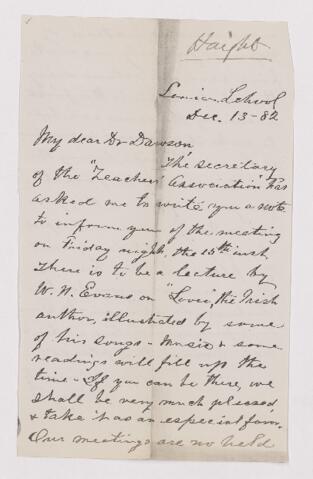 Haight
Senior School
Dec. 13-82
My dear Dr Dawson,
The secretary
of the "Teachers' Association" has
asked me to write you a note
to inform you of the meeting
on Friday night, the 15th inst.
There is to be a lecture by
W. N. Evans on "Lover," the Irish
author, illustrated by some
of his songs - Music & some
readings will fill up the
time - If you can be there, we
shall be very much pleased,
& take it as an especial favor.
Our meetings are no held